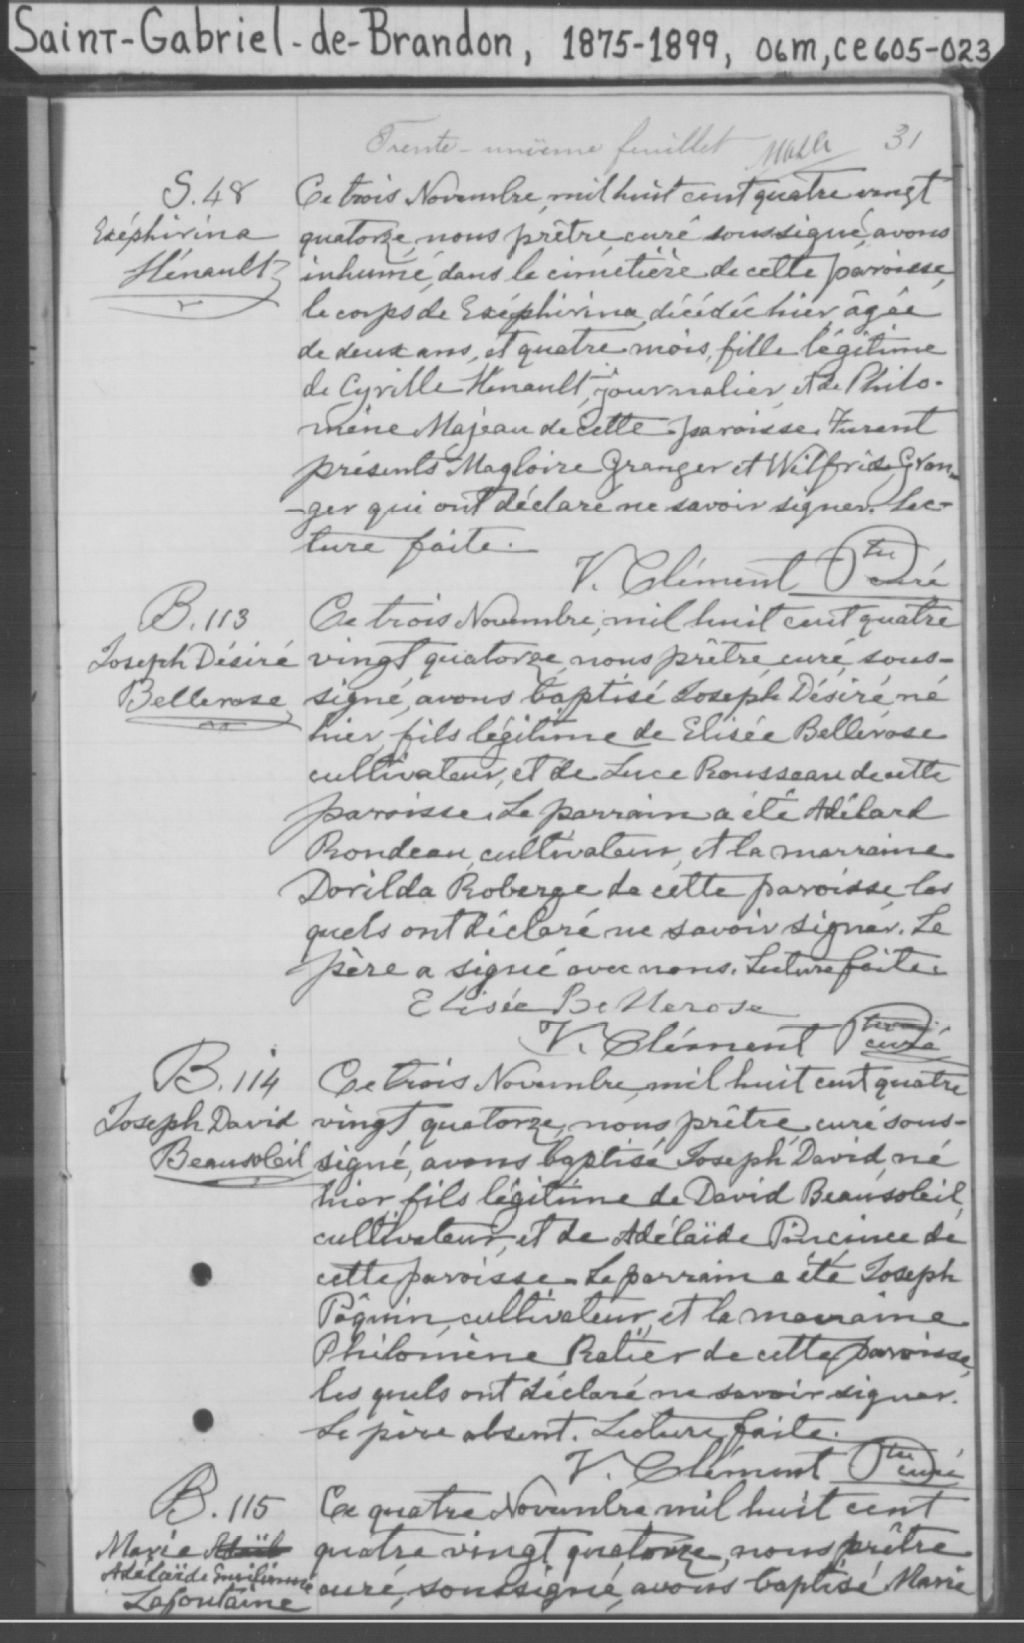 Saint-Gabriel-de-Brandon, 1875-1899, 06m, ce605-023
Trente-unième feuillet 31
S. 48
Exéphirina
Hénault
Ce trois Novembre, mil huit cent quatre vingt
quatorze, nous prêtre, curé soussigné, avons
inhumé, dans le cimetière de cette paroisse,
le corps de Exéphirina, décédée hier, âgée
de deux ans, et quatre mois, fille légitime
de Cyrille Hénault, journalier, et de Philo-
mène Majeau de cette paroisse. Furent
présents Magloire Granger et Wilfrid Gran-
-ger qui ont déclaré ne savoir signer. Lec-
ture faite.
V. Clément Ptre curé
B. 113
Joseph Désiré
Bellerose
Ce trois Novembre, mil huit cent quatre
vingt quatorze, nous prêtre, curé, sous-
signé, avons baptisé Joseph Désiré, né
hier, fils légitime de Elisée Bellerose
cultivateur, et de Luce Rousseau de cette
paroisse. Le parrain a été Adélard
Rondeau, cultivateur, et la marraine
Dorilda Roberge de cette paroisse, les
quels ont déclaré ne savoir signer. Le
père a signé avec nous. Lecture faite.
Elisée Bellerose
V. Clément Ptre curé
B. 114
Joseph David
Beausoleil
Ce trois Novembre, mil huit cent quatre
vingt quatorze, nous prêtre, curé sous-
signé, avons baptisé Joseph David, né
hier, fils légitime de David Beausoleil,
cultivateur, et de Adélaïde de
cette paroisse. Le parrain a été Joseph
Pâquin, cultivateur, et la marraine
Philomène Ratier de cette paroisse,
les quels ont déclaré ne savoir signer.
Le père absent. Lecture faite.
V. Clément Ptre curé
B. 115
Marie
Adélaïde
Lafontaine
Ce quatre Novembre mil huit cent
quatre vingt quatorze, nous prêtre
curé, soussigné, avons baptisé Marie